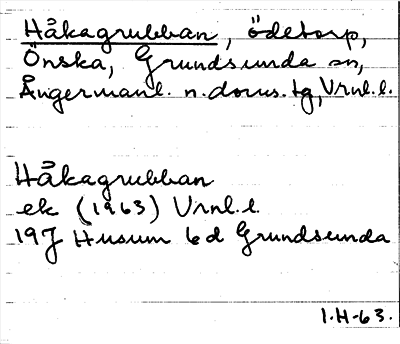 Håkagrubban, ödetorp,
Önska, Grundsunda sn,
Ångermanl. n. doms. tg, Vrnl. l.
Håkagrubban
ek (1963) Vrnl. l.
19J Husum 6d Grundsunda
I.H-63.